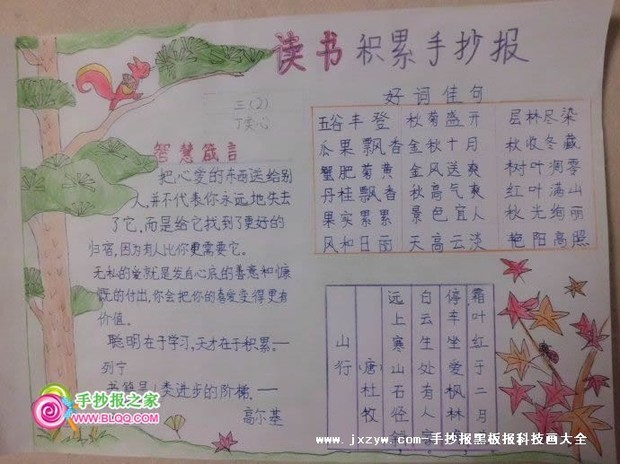 读书积累手抄报
三(2)
丁奕心
智慧箴言
把心爱的东西送给别
人并不代表你永远地失去
了它,而是给它找到了更好的
归宿,因为有人比你更需要它。
无私的爱就是发自心底的善意和慷
慨的付出,你会把你的喜爱变得更有
价值。
聪明在于学习,天才在于积累。—
列宁
书籍是人类进步的阶梯。—
高尔基
好词佳句
五谷丰登 秋菊盛开 层林尽染
瓜果飘香 金秋十月 秋收冬藏
蟹肥菊黄 金风送爽 树叶凋零
丹桂飘香 秋高气爽 红叶满山
果实累累 景色宜人 秋光绚丽
风和日丽 天高云淡 艳阳高照
山行
(唐)杜牧
远上寒山石径
白云生处有人
停车坐爱枫林
霜叶红于二月
手抄报之家
WWW.BLQQ.COM
www.jxzyw.com-手抄报黑板报科技画大全